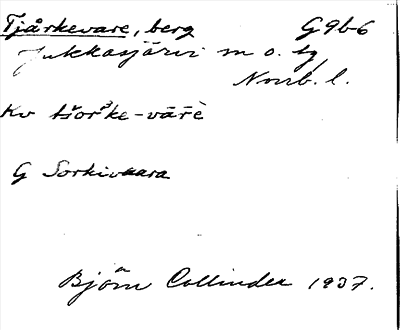 Tjårkevare, berg G9b6
Jukkasjärvi sn o. tg
Norrb. l.
Kv tšorᵊke-vārḕ
G Sorkivaara
Björn Collinder 1937.